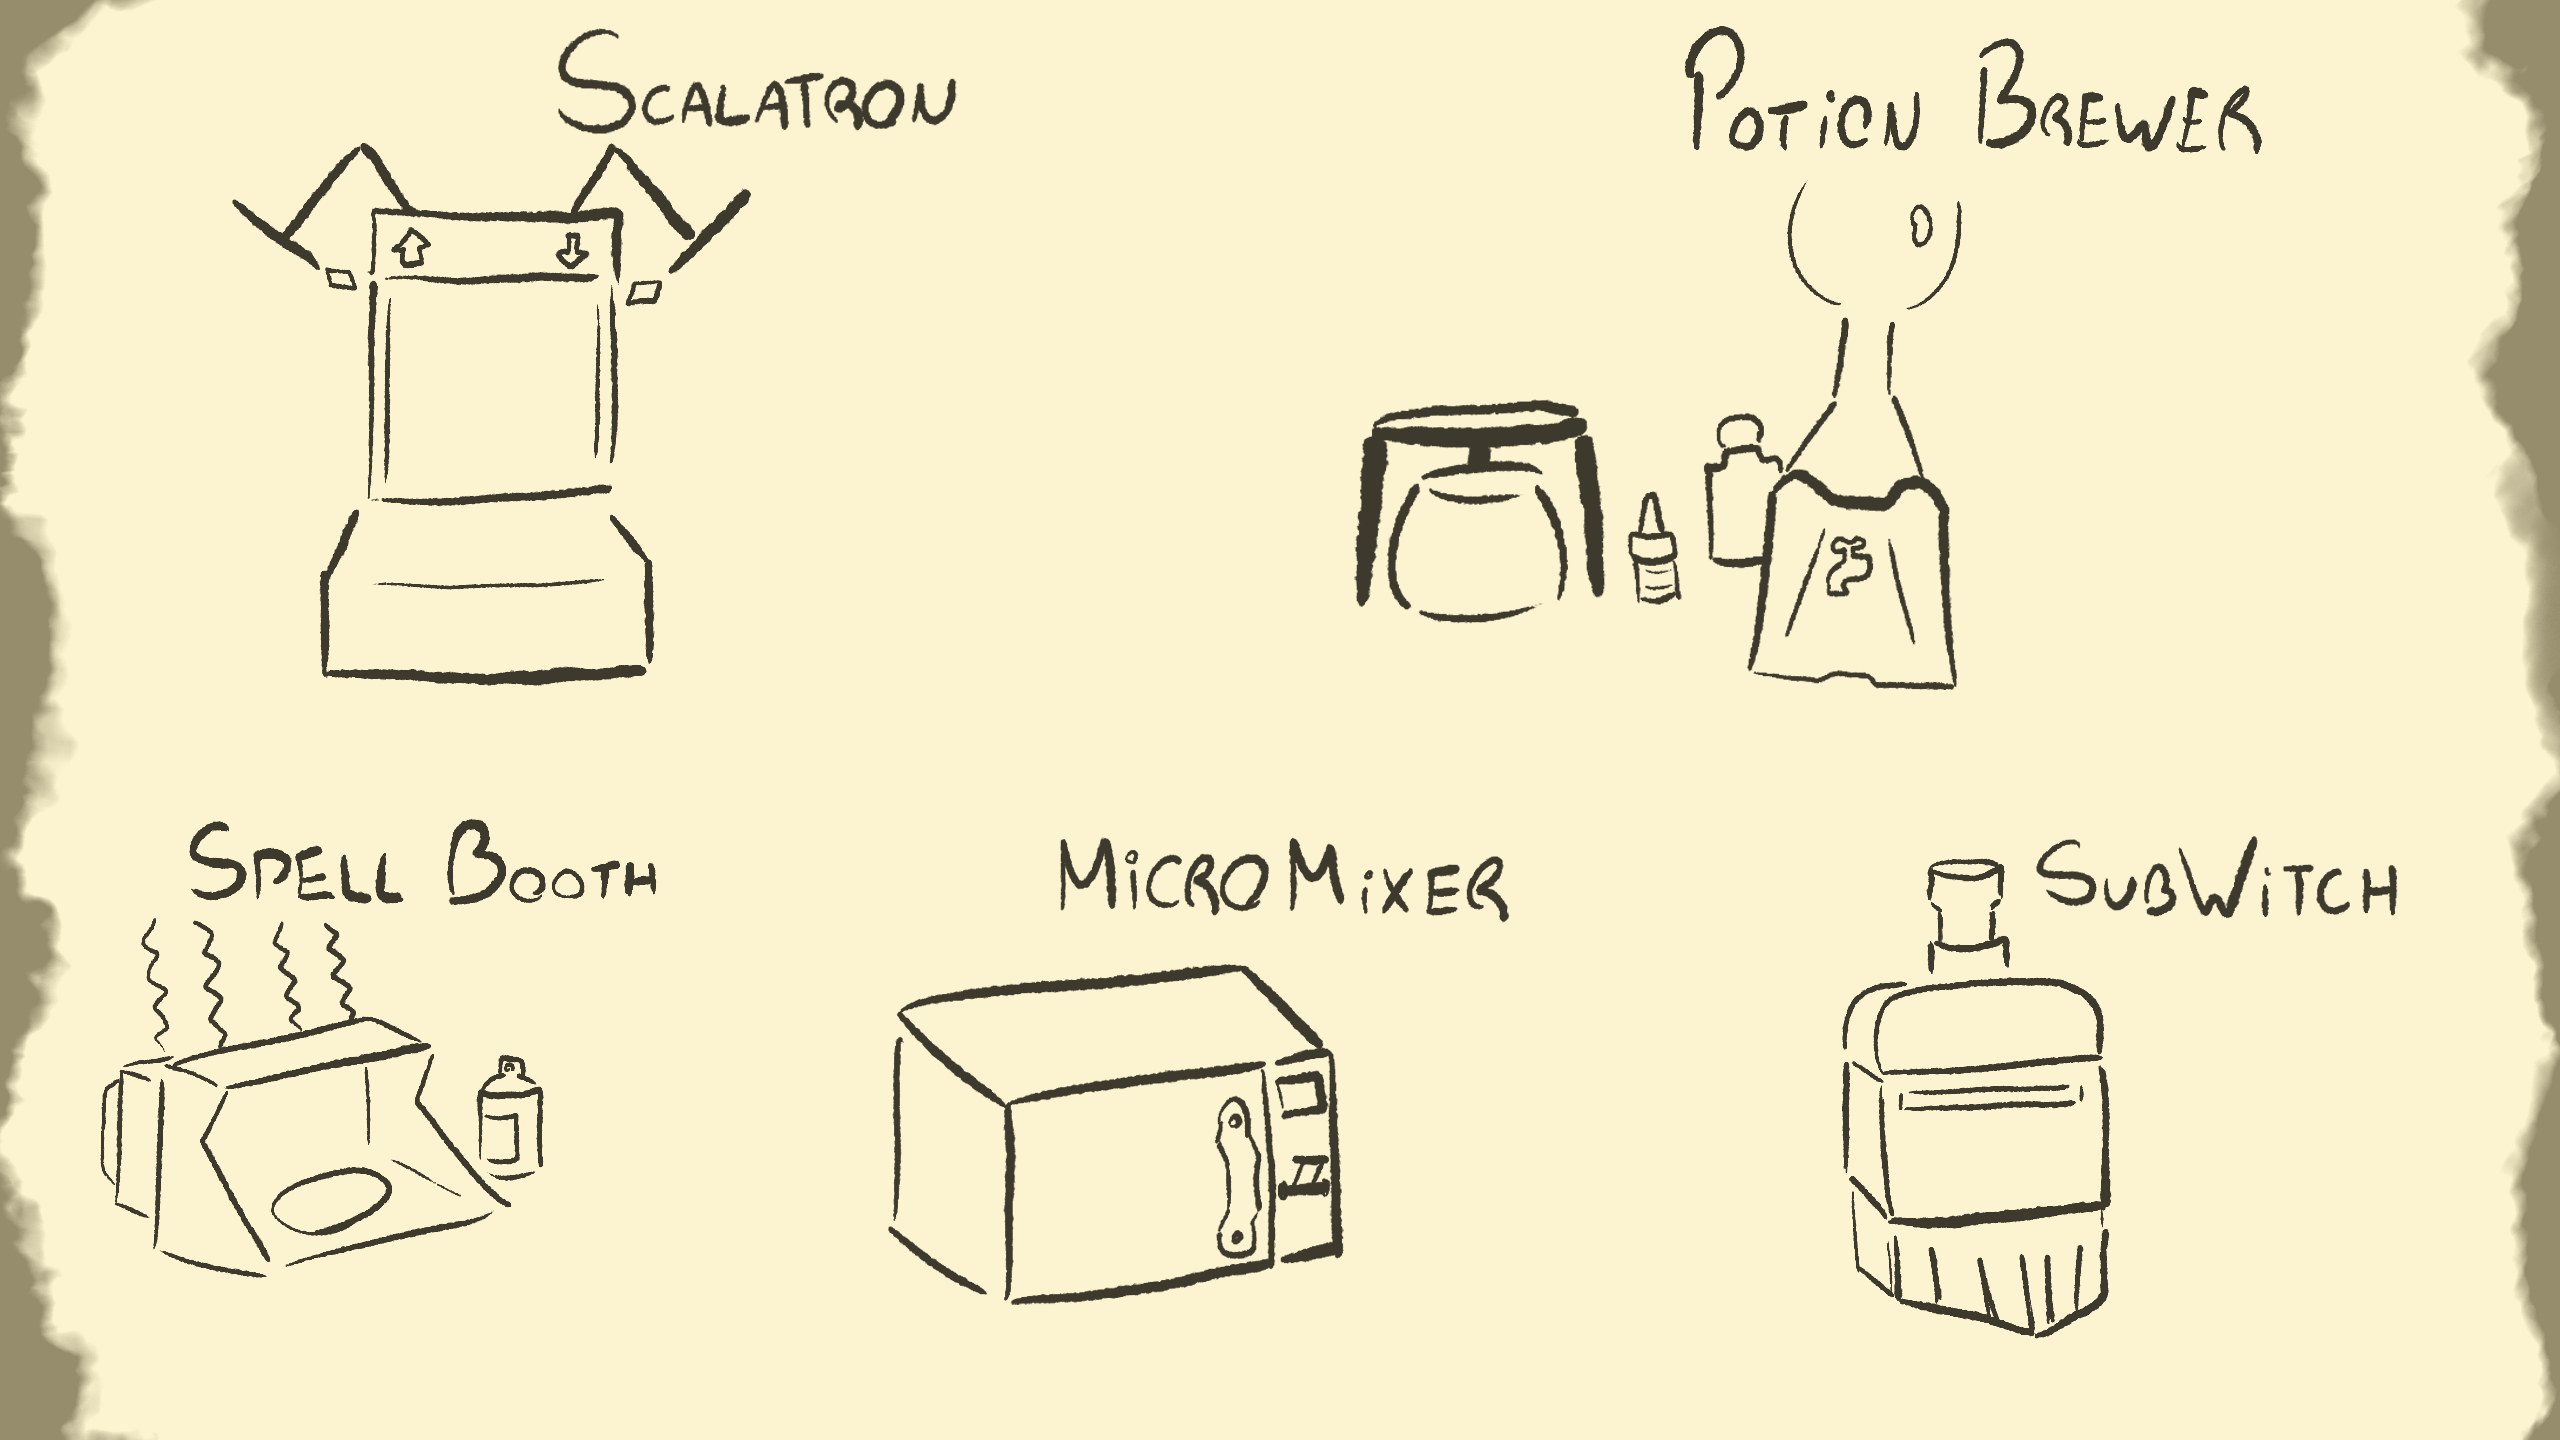 Scalatron
Potion Brewer
Spell Booth
MicroMixer
SubWitch